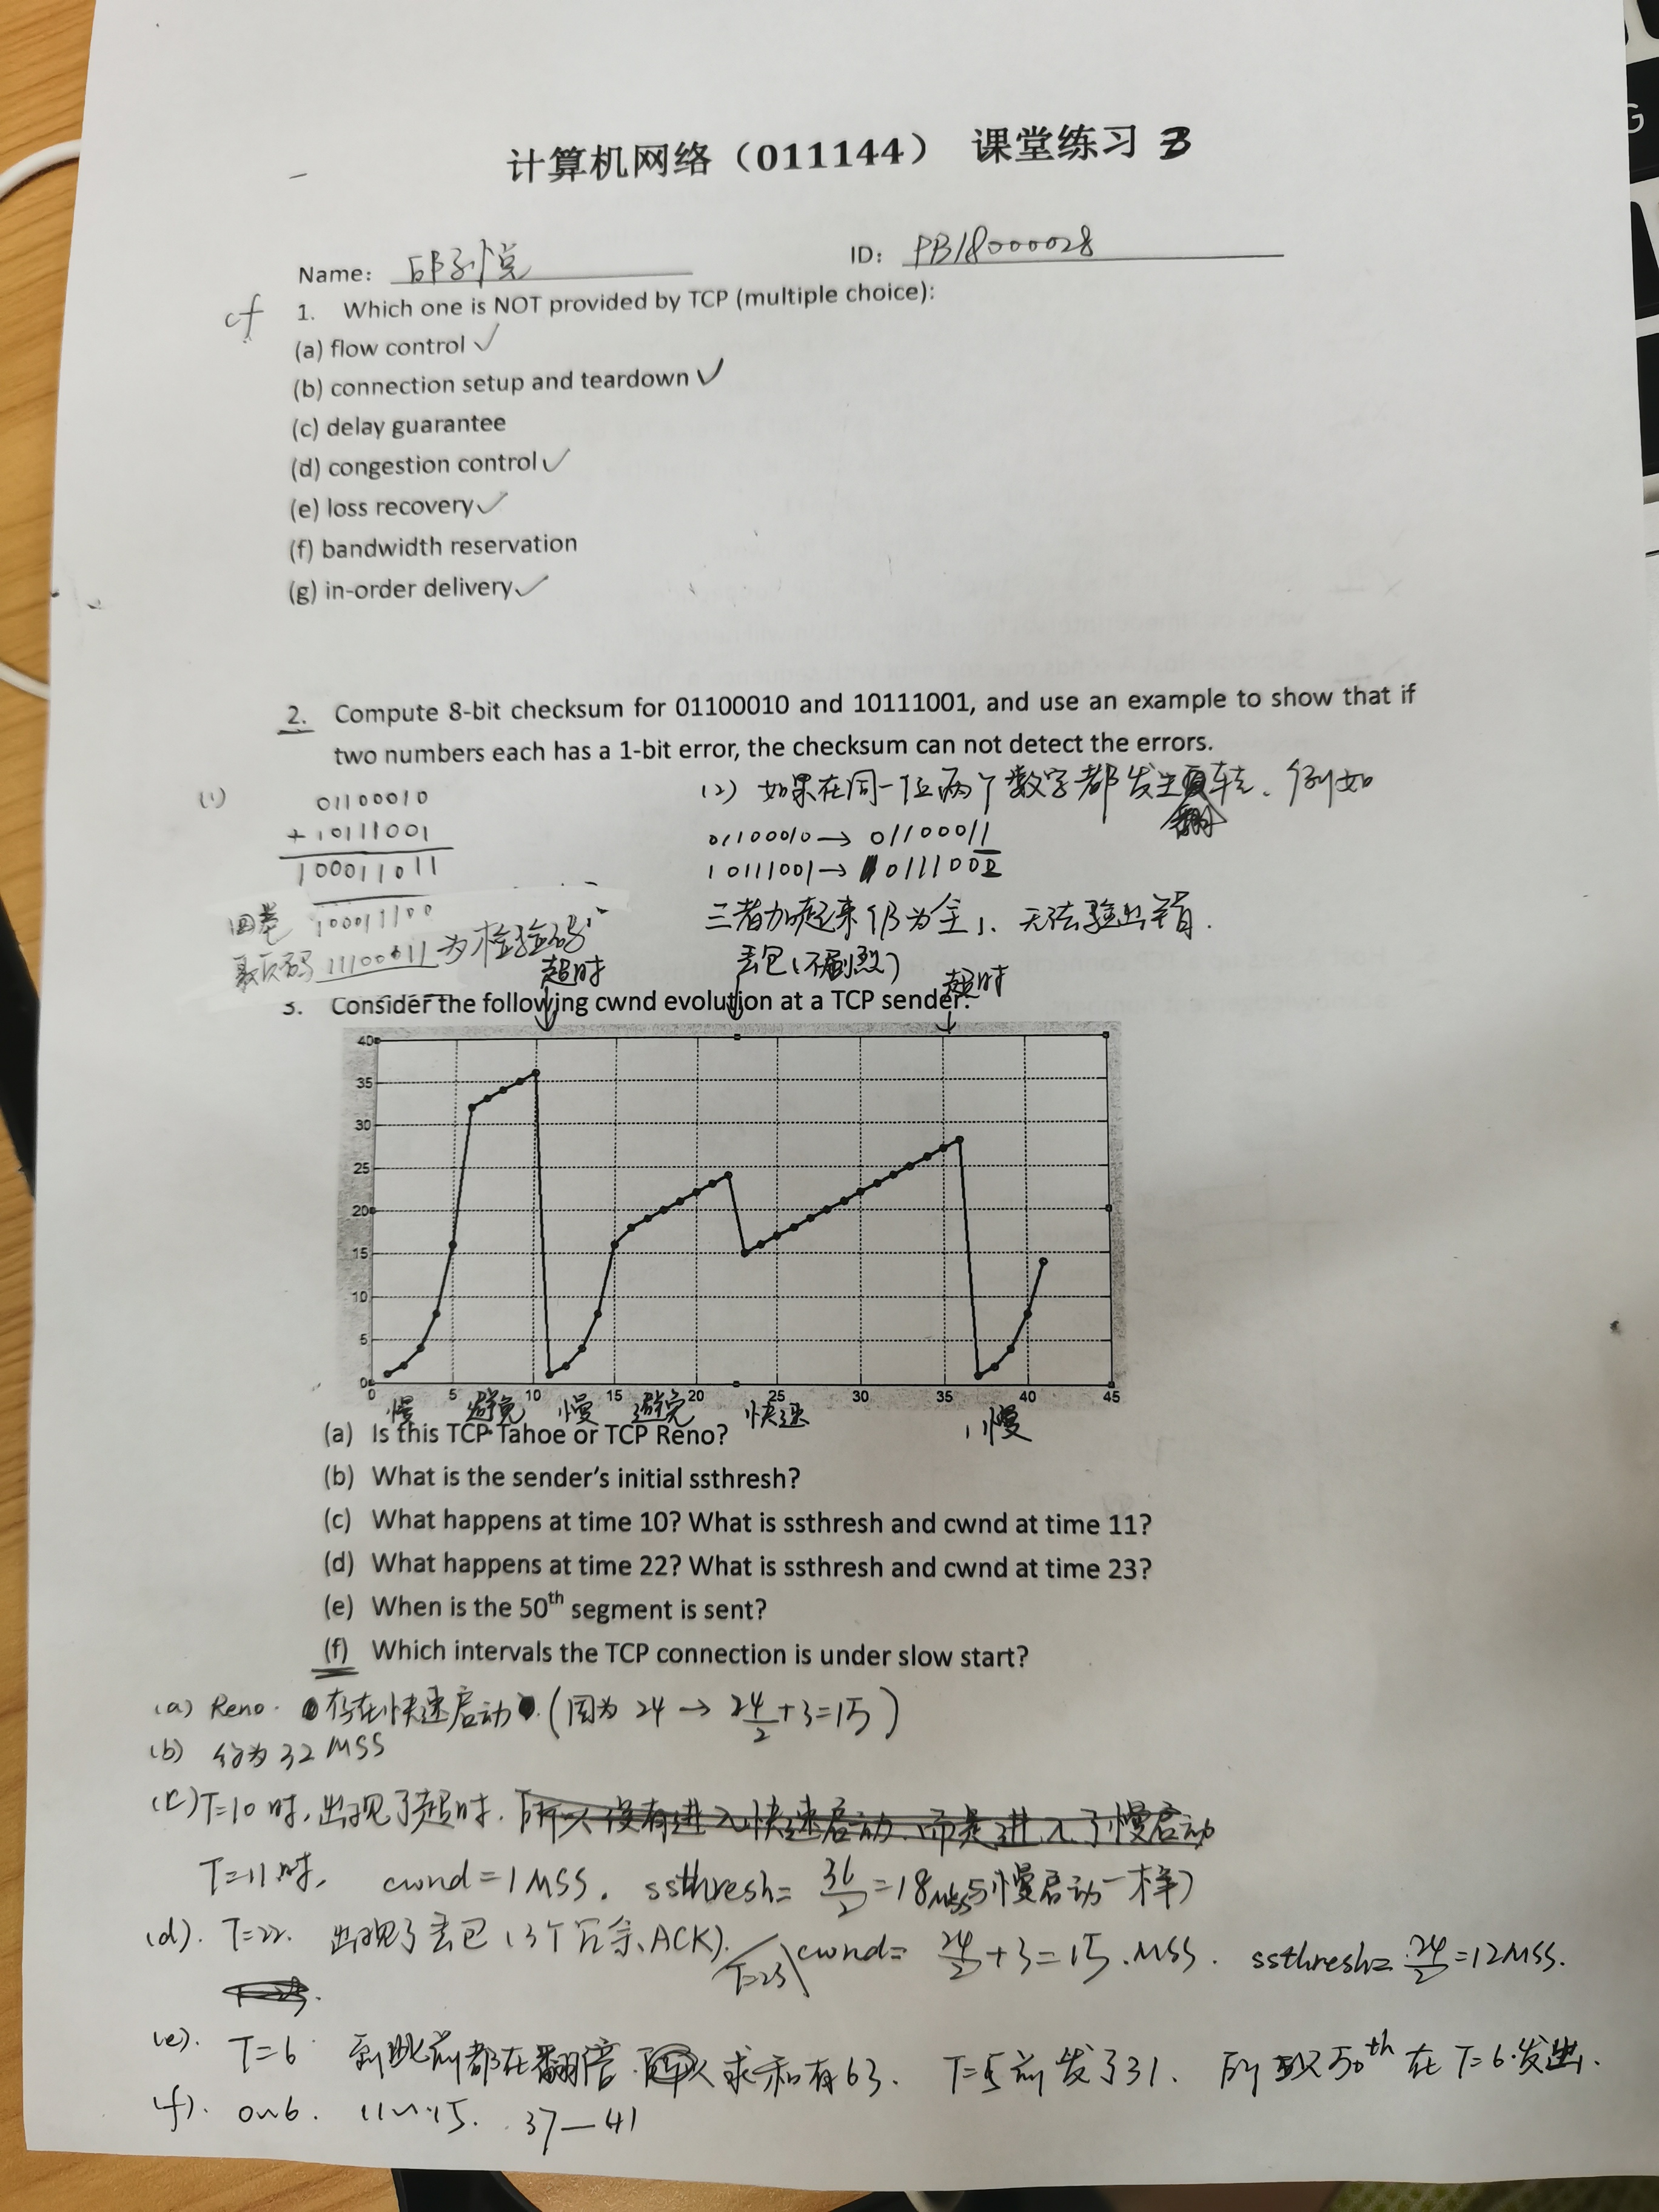 计算机网络（011144） 课堂练习 3
Name: 邱子悦 ID: PB18000028
cf 1. Which one is NOT provided by TCP (multiple choice):
(a) flow control ✓
(b) connection setup and teardown ✓
(c) delay guarantee
(d) congestion control ✓
(e) loss recovery ✓
(f) bandwidth reservation
(g) in-order delivery ✓
2. Compute 8-bit checksum for 01100010 and 10111001, and use an example to show that if
two numbers each has a 1-bit error, the checksum can not detect the errors.
(1)
01100010
+ 10111001
100011011
回卷 100011100
11100011 为检验码
(2) 如果在同一位两个数字都发生翻转、例如
01100010 → 01100011
10111001 → 10111000
三者加起来仍为全1、无法验出错.
超时
丢包(不剧烈)
超时
3. Consider the following cwnd evolution at a TCP sender.
40
35
30
25
20
15
10
5
0
0 5 10 15 20 25 30 35 40 45
慢 避免 慢 避免 快速 慢
(a) Is this TCP Tahoe or TCP Reno?
(b) What is the sender's initial ssthresh?
(c) What happens at time 10? What is ssthresh and cwnd at time 11?
(d) What happens at time 22? What is ssthresh and cwnd at time 23?
(e) When is the 50th segment is sent?
(f) Which intervals the TCP connection is under slow start?
(a) Reno. 存在快速启动. (因为 24 → 24/2+3=15)
(b) 约为 32 MSS
(c) T=10 时, 出现了超时. 所以没有进入快速启动、而是进入了慢启动
T=11时, cwnd=1MSS. ssthresh= 36/2=18MSS 与慢启动一样)
(d). T=22. 出现了丢包 (3个冗余ACK). T=23 cwnd= 24/2+3=15.MSS. ssthresh= 24/2=12MSS.
(e). T=6 到此前都在翻倍. 求和有63. T=5前发了31. 所以50th在T=6发出.
(f). 0~6. 11~15. 37—41